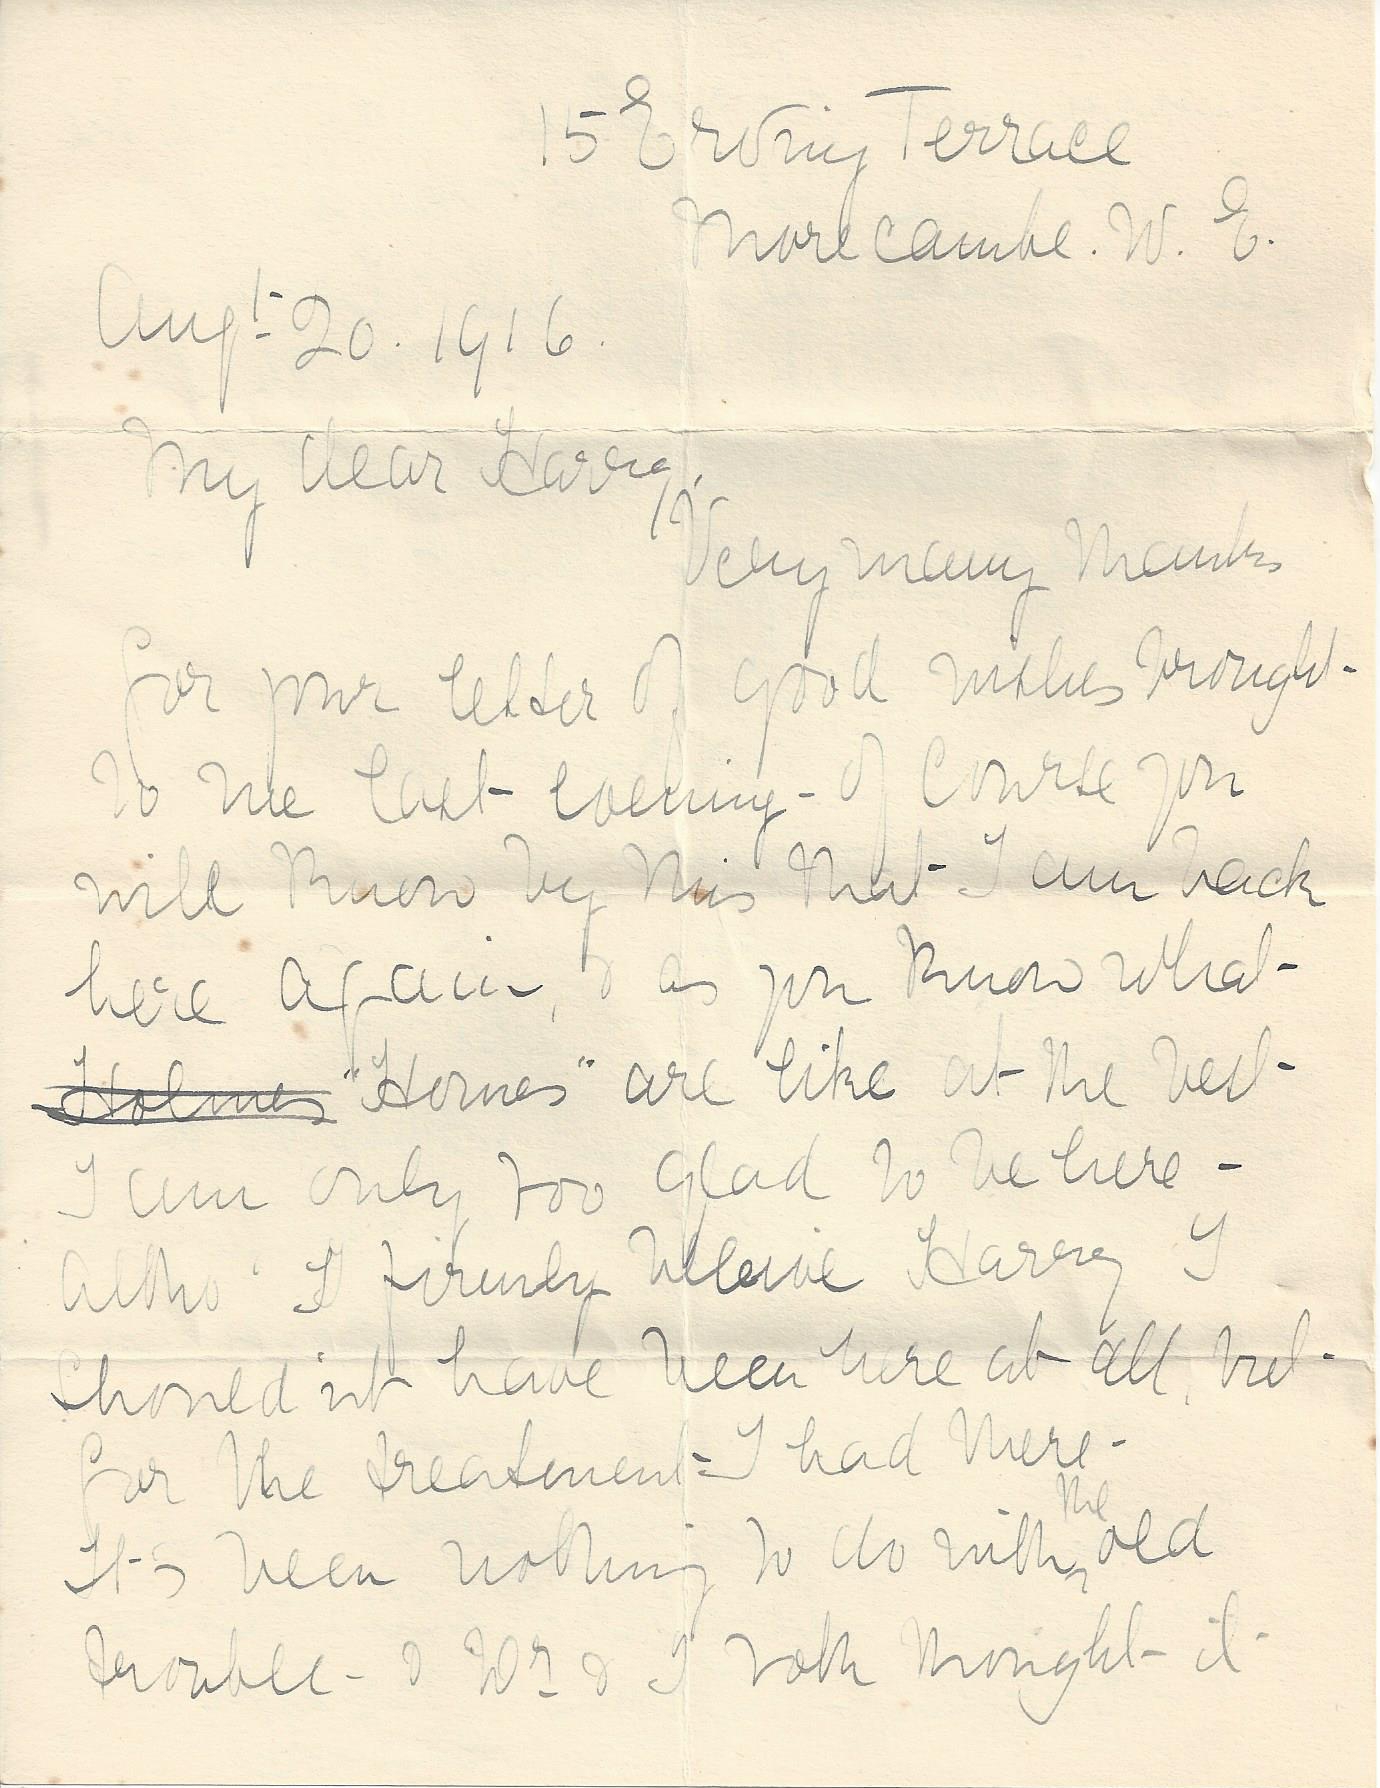 15 Erving Terrace
Morecambe. W. E.
Augt 20. 1916.
My dear Harry,
Very many thanks
for your letter of good wishes brought
to me last evening - of course you
will know by this that I am back
here again, & as you know what
Holmes "Homes" are like at the best
I am only too glad to be here -
Altho' I firmly beleive Harry I
should'nt have been here at all, but
for the treatment I had there -
the
It's been nothing to do with old
trouble - & Dr & I both thought it